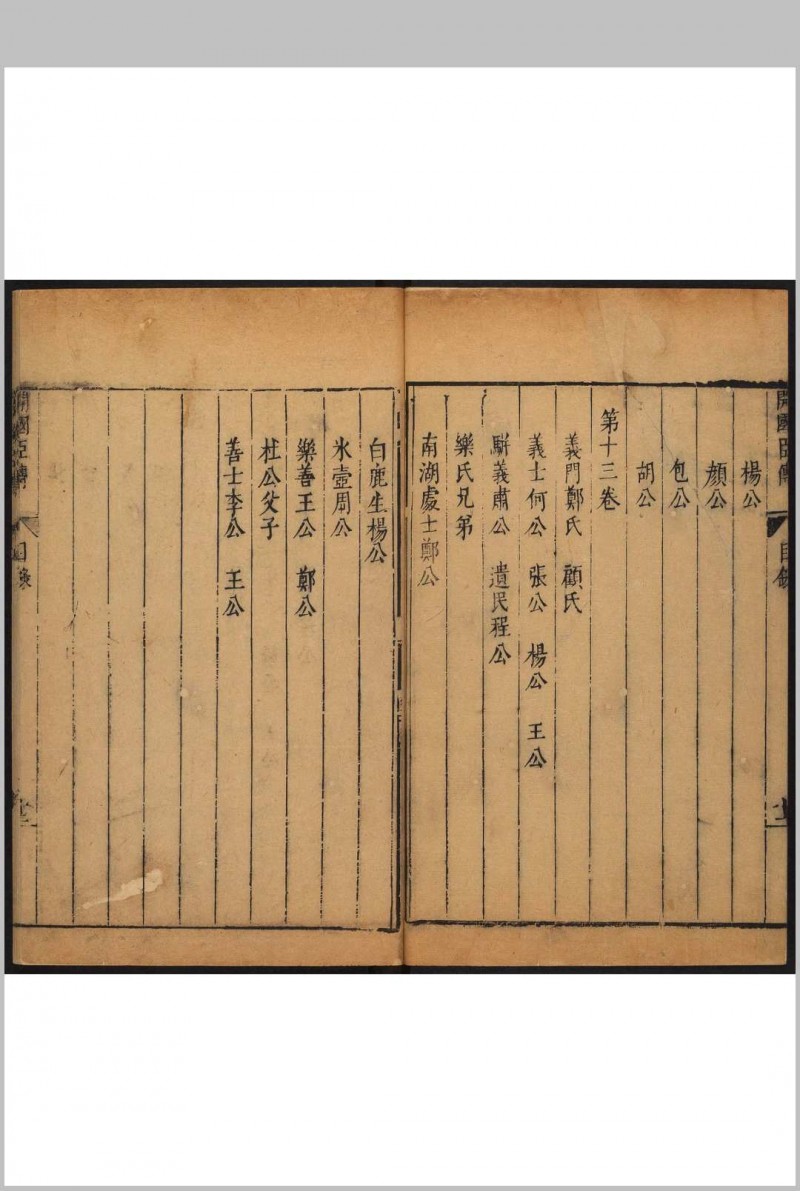 開國臣傳 目錄
楊公
顏公
包公
胡公
第十三卷
義門鄭氏 顧氏
義士何公 張公 楊公 王公
駢義肅公 遺民程公
樂氏兄弟
南湖處士鄭公
白鹿生楊公
氷壺周公
樂善王公 鄭公
杜公父子
善士李公 王公
開國臣傳 目錄